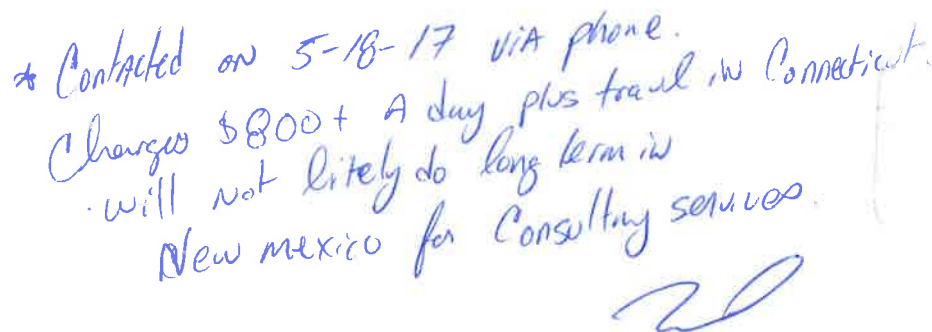 * Contacted on 5-18-17 via phone.
Charges $800+ A day plus travel in Connecticut.
will Not likely do long term in
New mexico for Consulting services.